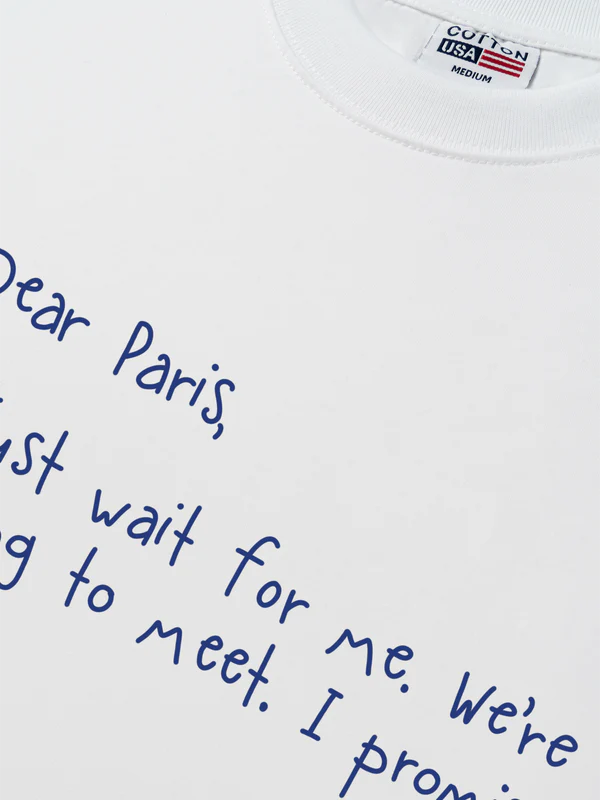 COTTON
USA
MEDIUM
Dear Paris,
ust wait for me. We're
g to meet. I promi